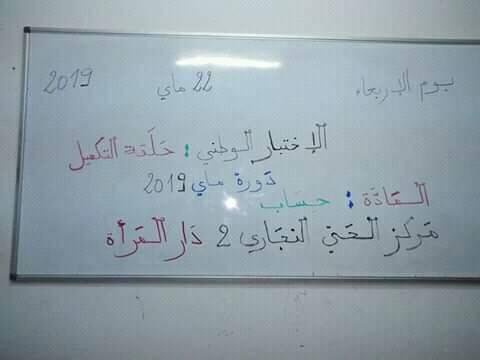 يوم الإربعاء 22 ماي 2019
الإختبار الوطني : حلقة التكميل
دورة ماي 2019
المادة : حساب
مركز الحي التجاري 2 دار المرأة